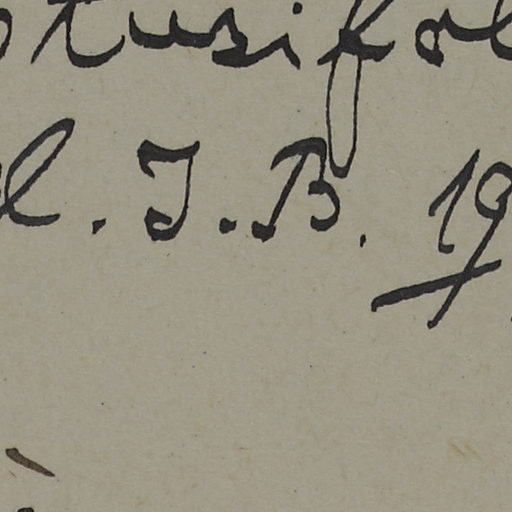 otusifol
l. J. B. 19